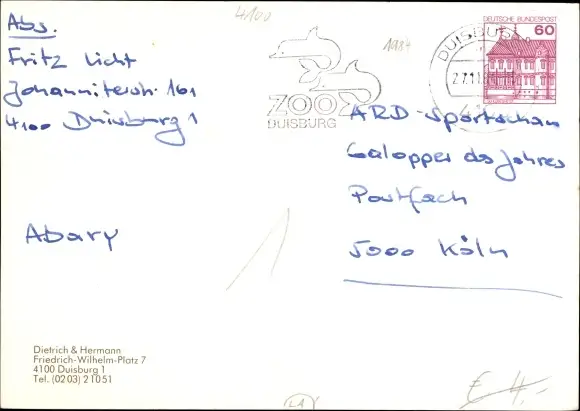 Abs.
Fritz Licht
Johanniterstr. 161
4100 Duisburg 1
Abary
4100
1984
ZOO
DUISBURG
DUISBURG
DEUTSCHE BUNDESPOST
60
ARD-Sportschau
Galopper des Jahres
Postfach
5000 Köln
1
Dietrich & Hermann
Friedrich-Wilhelm-Platz 7
4100 Duisburg 1
Tel. (02 03) 2 10 51
LA
€ 4.-